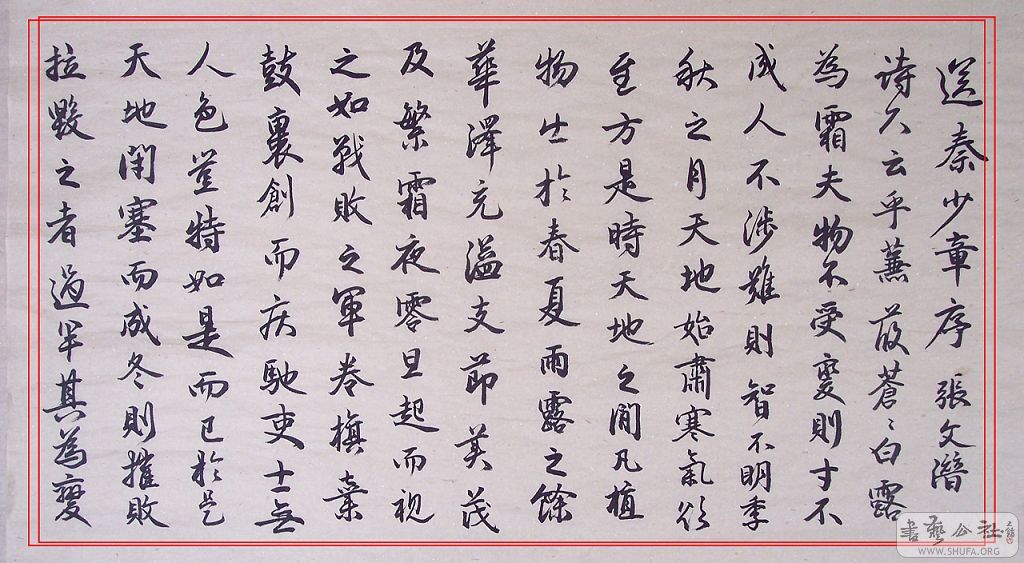 送秦少章序 張文潛
詩不云乎蒹葭蒼〻白露
為霜夫物不受變則才不
成人不涉難則智不明季
秋之月天地始肅寒氣欲
至方是時天地之間凡植
物出於春夏雨露之餘
華澤充溢支節美茂
及繁霜夜零旦起而視
之如戰敗之軍卷旗棄
鼓裹創而疾馳吏士無
人色豈特如是而已於是
天地閉塞而成冬則摧敗
拉毀之者過半其為變
書藝公社
WWW.SHUFA.ORG